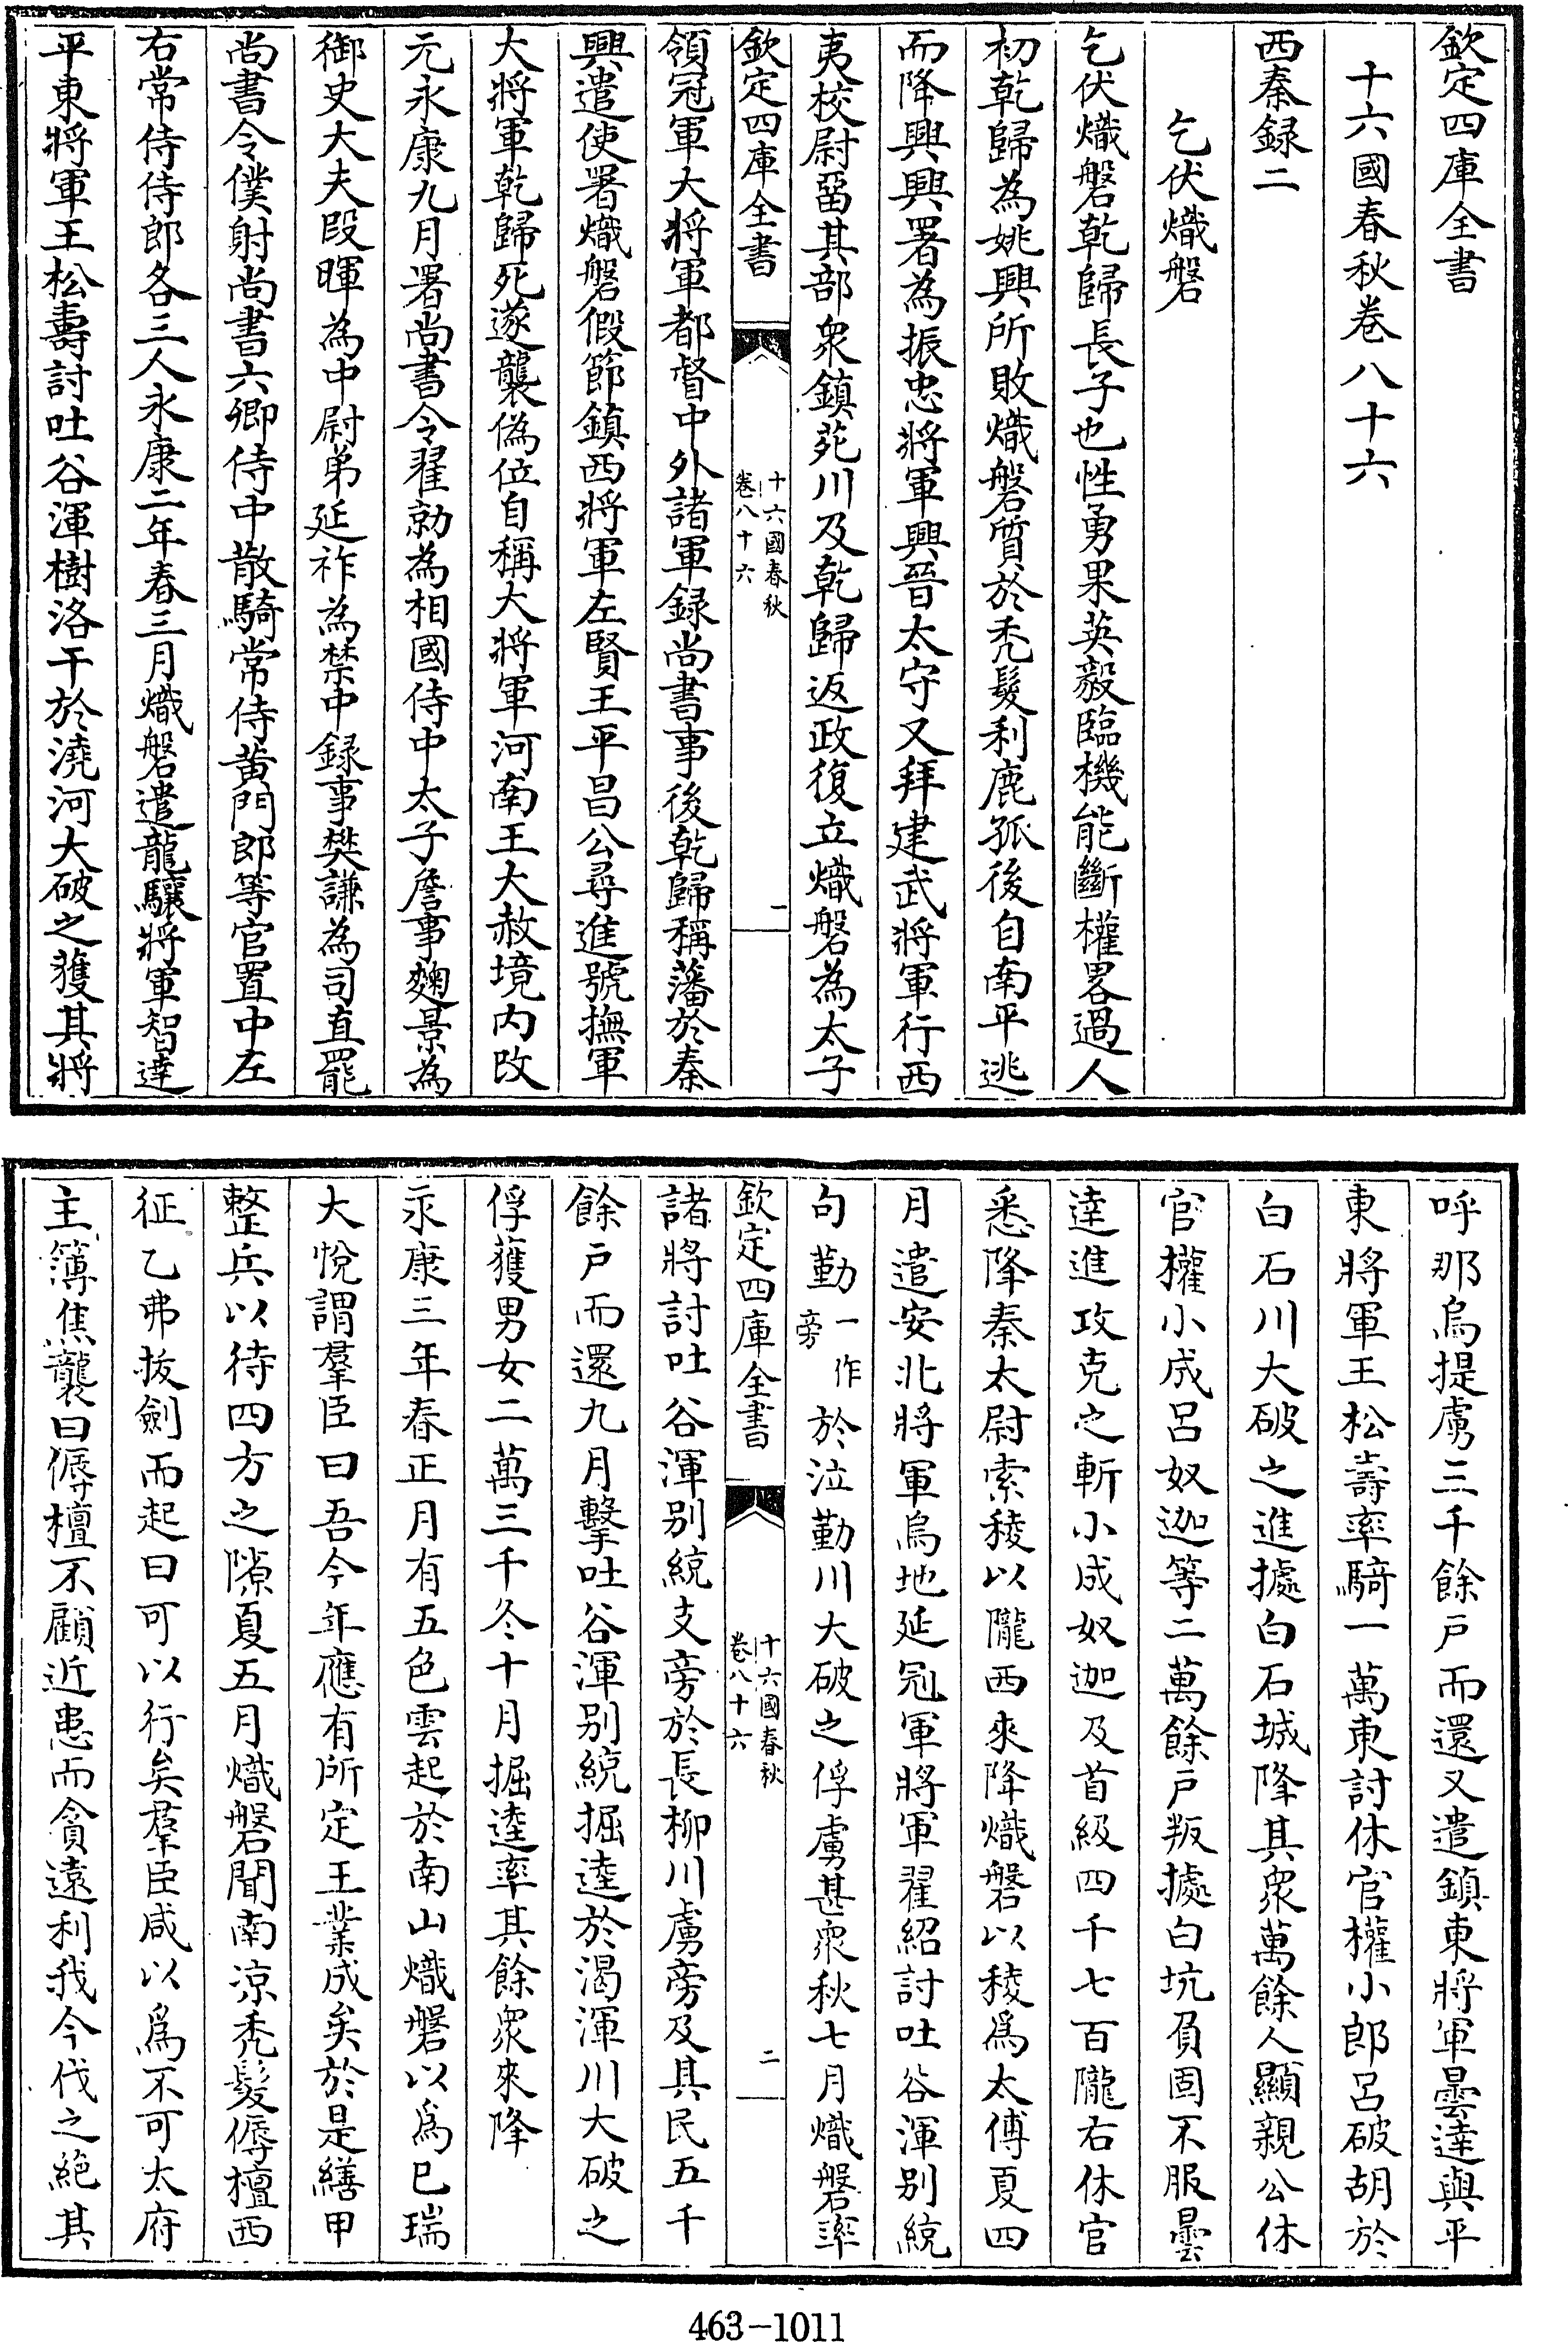 欽定四庫全書
十六國春秋卷八十六
西秦録二
乞伏熾磐
乞伏熾磐乾歸長子也性勇果英毅臨機能斷權畧過人
初乾歸為姚興所敗熾磐質於禿髮利鹿孤後自南平逃
而降興興署為振忠將軍興晉太守又拜建武將軍行西
夷校尉留其部衆鎮苑川及乾歸返政復立熾磐為太子
欽定四庫全書
十六國春秋
卷八十六
一
領冠軍大將軍都督中外諸軍録尚書事後乾歸稱藩於秦
興遣使署熾磐假節鎮西將軍左賢王平昌公尋進號撫軍
大將軍乾歸死遂襲偽位自稱大將軍河南王大赦境内改
元永康九月署尚書令翟勍為相國侍中太子詹事麴景為
御史大夫叚暉為中尉弟延祚為禁中録事樊謙為司直罷
尚書令僕射尚書六卿侍中散騎常侍黄門郎等官置中左
右常侍侍郎各三人永康二年春三月熾磐遣龍驤將軍智達
平東將軍王松壽討吐谷渾樹洛干於澆河大破之獲其將
呼那烏提虜三千餘戶而還又遣鎮東將軍曇達與平
東將軍王松壽率騎一萬東討休官權小郎呂破胡於
白石川大破之進據白石城降其衆萬餘人顯親公休
官權小成呂奴迦等二萬餘戶叛據白坑負固不服曇
達進攻克之斬小成奴迦及首級四千七百隴右休官
悉降秦太尉索稜以隴西來降熾磐以稜爲太傅夏四
月遣安北將軍烏地延冠軍將軍翟紹討吐谷渾别統
句勤一作旁於泣勤川大破之俘虜甚衆秋七月熾磐率
欽定四庫全書
十六國春秋
卷八十六
二
諸將討吐谷渾别統支旁於長柳川虜旁及其民五千
餘戶而還九月擊吐谷渾别統掘逵於渴渾川大破之
俘獲男女二萬三千冬十月掘逵率其餘衆來降
永康三年春正月有五色雲起於南山熾磐以爲已瑞
大悅謂羣臣曰吾今年應有所定王業成矣於是繕甲
整兵以待四方之隙夏五月熾磐聞南凉禿髮傉檀西
征乙弗抜劍而起曰可以行矣羣臣咸以爲不可太府
主簿焦襲曰傉檀不顧近患而貪遠利我今伐之絶其
463-1011